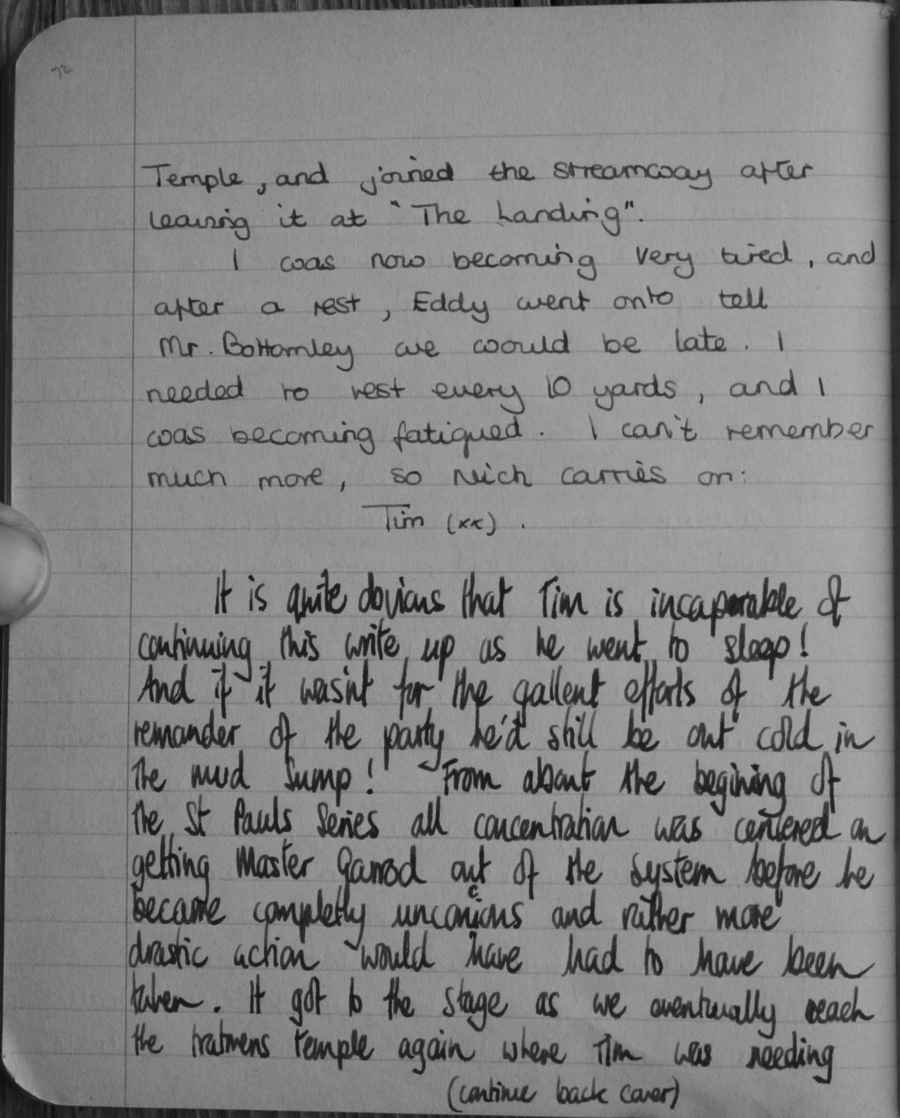 72
Temple, and joined the streamway after
leaving it at "The Landing".
I was now becoming very tired, and
after a rest, Eddy went onto tell
Mr. Bottomley we would be late. I
needed to rest every 10 yards, and I
was becoming fatigued. I can't remember
much more, so Nich carries on:
Tim (xx).
It is quite dovious that Tim is incaperable of
continuing this write up as he went to sleep!
And if it wasint for the gallent efforts of the
remander of the party he'd still be out cold in
the mud sump! From about the begining of
the St Pauls Series all concentration was centered on
getting Master Garrod out of the system before he
became completly unconcious and rather more
drastic action would have had to have been
taken. It got to the stage as we eventually reach
the temple again where Tim was needing
(continue back cover)